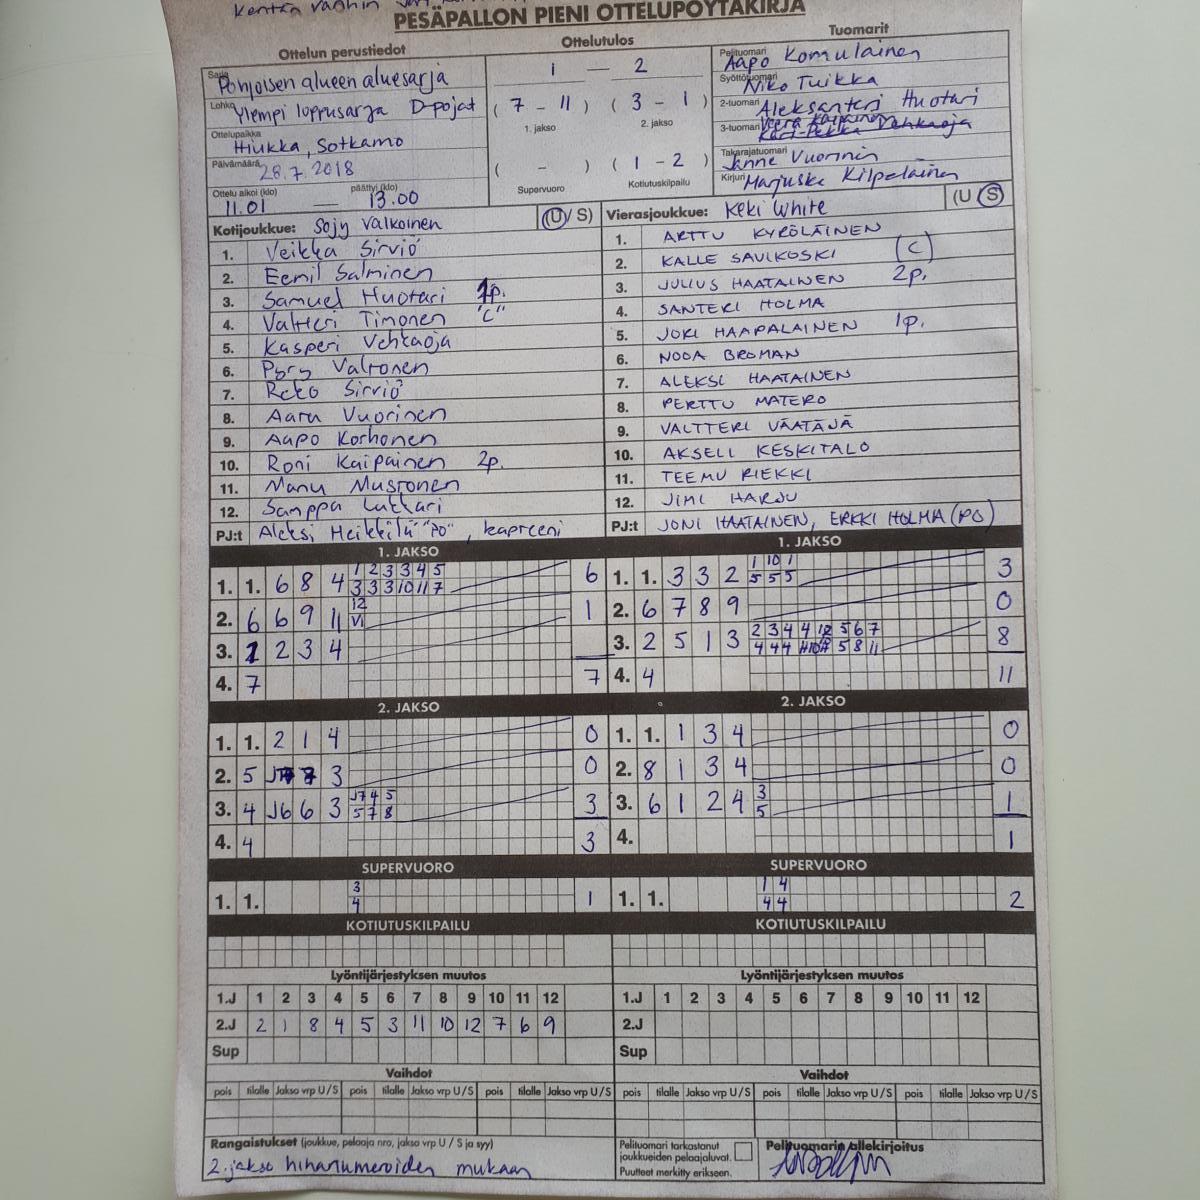 Kentän vanhin
PESÄPALLON PIENI OTTELUPÖYTÄKIRJA
Ottelun perustiedot
Sarja Pohjoisen alueen aluesarja
Lohko Ylempi loppusarja D-pojat
Ottelupaikka Hiukka, Sotkamo
Päivämäärä 28.7.2018
Ottelu alkoi (klo) 11.01 — päättyi (klo) 13.00
Ottelutulos
1 — 2
( 7 - 11 ) ( 3 - 1 )
1. jakso 2. jakso
( - ) ( 1 - 2 )
Supervuoro Kotiutuskilpailu
Tuomarit
Pelituomari Aapo Komulainen
Syöttötuomari Niko Tuikka
2-tuomari Aleksanteri Huotari
3-tuomari Veera Kaipainen
Kari-Pekka Vehkaoja
Takarajatuomari Janne Vuorinen
Kirjuri Marjuska Kilpeläinen
Kotijoukkue: Sojy Valkoinen (U/ S)
1. Veikka Sirviö
2. Eemil Salminen
3. Samuel Huotari 1p.
4. Valtteri Timonen "C"
5. Kasperi Vehkaoja
6. Pyry Valtonen
7. Reko Sirviö
8. Aaru Vuorinen
9. Aapo Korhonen
10. Roni Kaipainen 2p.
11. Manu Mustonen
12. Samppa Luttari
PJ:t Aleksi Heikkilä "PO", kapteeni
Vierasjoukkue: Keki White (U / S)
1. ARTTU KYRÖLÄINEN
2. KALLE SAVIKOSKI (C)
3. JULIUS HAATAINEN 2p.
4. SANTERI HOLMA
5. JORI HAAPALAINEN 1p.
6. NOOA BROMAN
7. ALEKSI HAATAINEN
8. PERTTU MATERO
9. VALTTERI VÄÄTÄJÄ
10. AKSELI KESKITALO
11. TEEMU RIEKKI
12. JIMI HARJU
PJ:t JONI HAATAINEN, ERKKI HOLMA (PO)
1. JAKSO
1. 1. 6 8 4 1 2 3 3 4 5 6
3 3 3 10 11 7
2. 6 6 9 11 12 1
VI
3. 1 2 3 4
4. 7 7
1. JAKSO
1. 1. 3 3 2 1 10 1 3
5 5 5
2. 6 7 8 9 0
3. 2 5 1 3 2 3 4 4 12 5 6 7 8
4 4 4 5 8 11
4. 4 11
2. JAKSO
1. 1. 2 1 4 0
2. 5 3 0
3. 4 J6 6 3 J7 4 5 3
5 7 8
4. 4 3
2. JAKSO
1. 1. 1 3 4 0
2. 8 1 3 4 0
3. 6 1 2 4 3 1
5
4. 1
SUPERVUORO
1. 1. 3 1
4
SUPERVUORO
1. 1. 1 4 2
4 4
KOTIUTUSKILPAILU
KOTIUTUSKILPAILU
Lyöntijärjestyksen muutos
1.J 1 2 3 4 5 6 7 8 9 10 11 12
2.J 2 1 8 4 5 3 11 10 12 7 6 9
Sup
Lyöntijärjestyksen muutos
1.J 1 2 3 4 5 6 7 8 9 10 11 12
2.J
Sup
Vaihdot
pois tilalle Jakso vrp U / S pois tilalle Jakso vrp U / S pois tilalle Jakso vrp U / S
Vaihdot
pois tilalle Jakso vrp U / S pois tilalle Jakso vrp U / S pois tilalle Jakso vrp U / S
Rangaistukset (joukkue, pelaaja nro, jakso vrp U / S ja syy)
2. jakso hihanumeroiden mukaan
Pelituomari tarkastanut
joukkueiden pelaajaluvat.
Puutteet merkitty erikseen.
Pelituomarin allekirjoitus